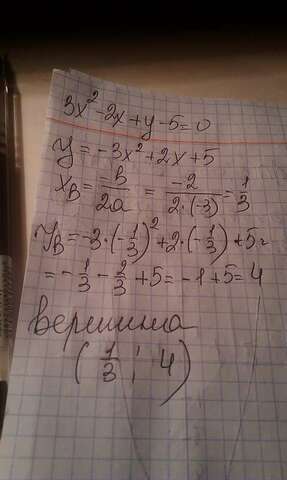 3x² - 2x + y - 5 = 0
y = -3x² + 2x + 5
x_B = -b/2a = -2/2·(-3) = 1/3
y_B = -3·(-1/3)² + 2·(-1/3) + 5 =
= -1/3 - 2/3 + 5 = -1 + 5 = 4
вершина
(1/3 ; 4)